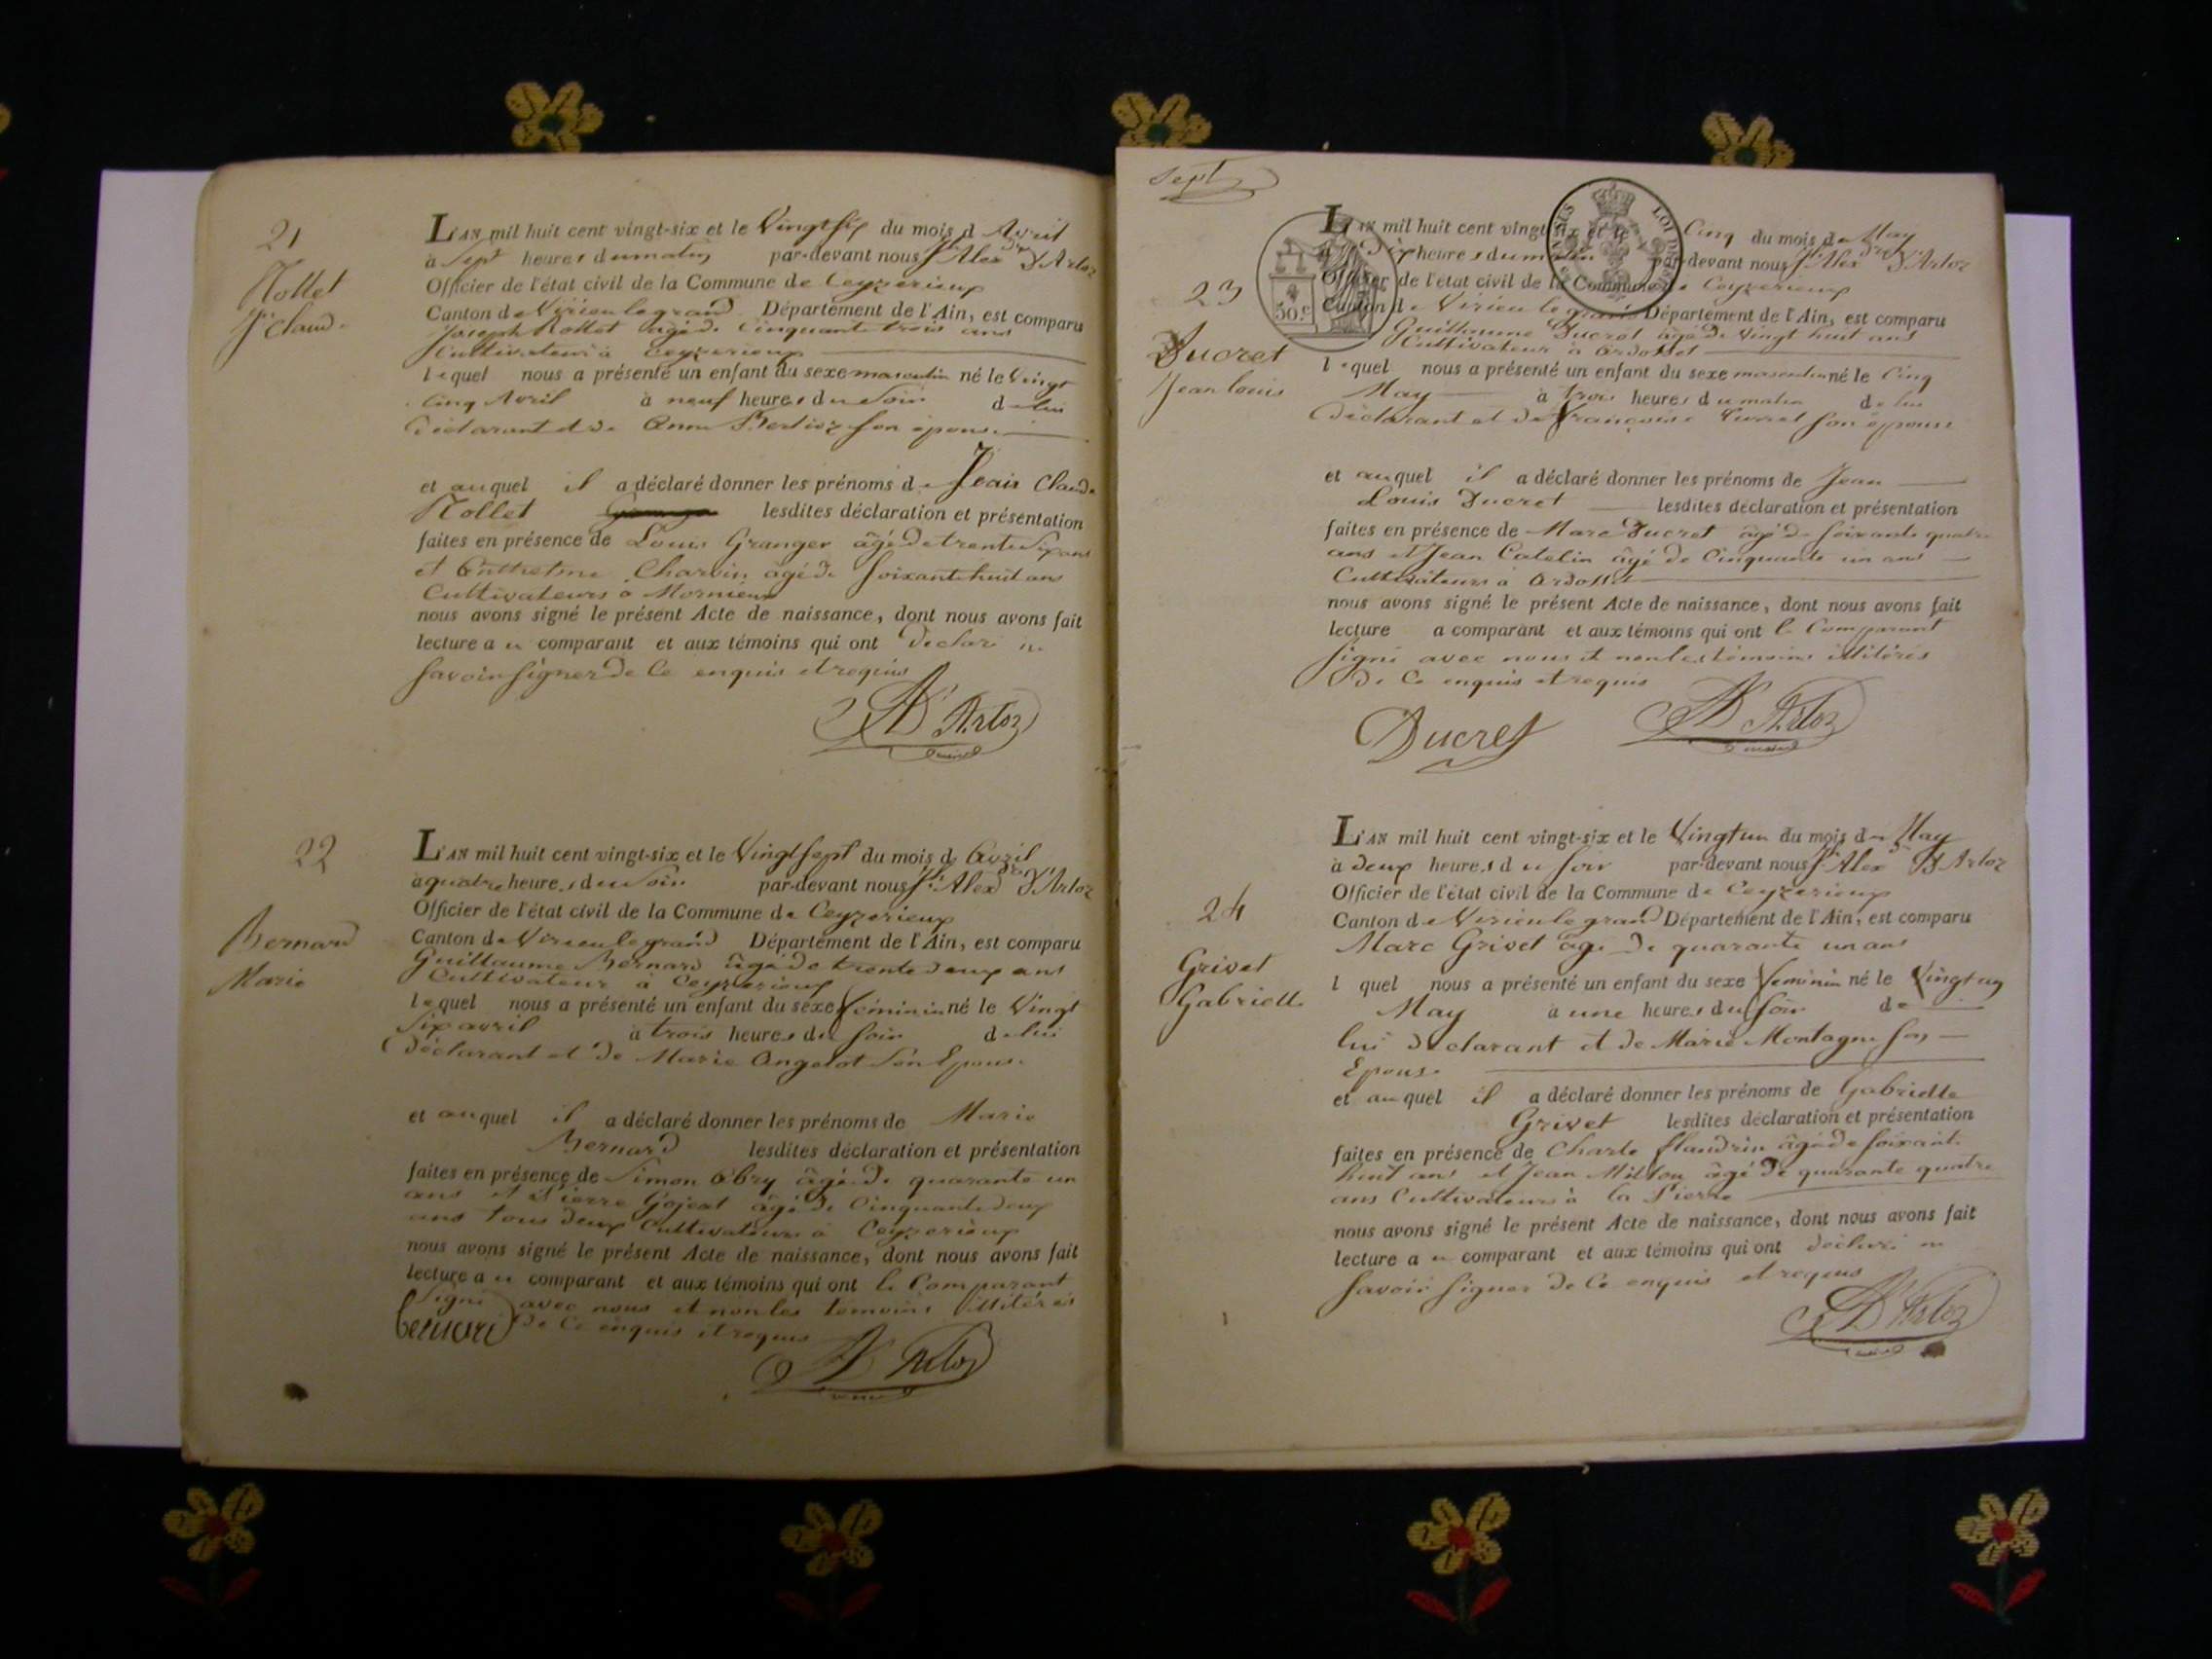 21
Rollet
Jn Claude
L'AN mil huit cent vingt-six et le Vingt six du mois d Avril
à Sept heures du matin par-devant nous Jh Alexdre D'Artoz
Officier de l'état civil de la Commune de Ceyzerieux
Canton de Virieu le grand Département de l'Ain, est comparu
Joseph Rollet âgé de Cinquante trois ans
Cultivateur à Ceyzerieux
lequel nous a présenté un enfant du sexe masculin né le Vingt
Cinq Avril à neuf heures du Soir de lui
Déclarant et de Anne Berlioz son épouse
et auquel il a déclaré donner les prénoms de Jean Claude
Rollet lesdites déclaration et présentation
faites en présence de Louis Granger âgé de trente six ans
et Charvin âgé de Soixante huit ans
Cultivateurs à Mornieux
nous avons signé le présent Acte de naissance, dont nous avons fait
lecture au comparant et aux témoins qui ont Déclaré ne
Savoir signer de Ce enquis et requis
AD'Artoz
22
Bernard
Marie
L'AN mil huit cent vingt-six et le Vingt Sept du mois d Avril
à quatre heures du Soir par-devant nous Jh Alexdre D'Artoz
Officier de l'état civil de la Commune de Ceyzerieux
Canton de Virieu le grand Département de l'Ain, est comparu
Guillaume Bernard âgé de trente deux ans
Cultivateur à Ceyzerieux
lequel nous a présenté un enfant du sexe féminin né le Vingt
Six avril à trois heures du Soir de lui
Déclarant et de Marie Angelot Son Epouse
et auquel il a déclaré donner les prénoms de Marie
Bernard lesdites déclaration et présentation
faites en présence de Simon Abry âgé de quarante un
ans et Pierre Gojeat âgé de Cinquante deux
ans tous deux Cultivateurs à Ceyzerieux
nous avons signé le présent Acte de naissance, dont nous avons fait
lecture au comparant et aux témoins qui ont le Comparant
Signé avec nous et non les témoins illitérés
de Ce enquis et requis
AD'Artoz
Sept
23
Ducret
Jean Louis
L'AN mil huit cent vingt-six et le Cinq du mois de May
à Dix heures du matin par-devant nous Jh Alexdre D'Artoz
Officier de l'état civil de la Commune de Ceyzerieux
Canton de Virieu le grand Département de l'Ain, est comparu
Guillaume Ducret âgé de Vingt huit ans
Cultivateur à Ardosset
lequel nous a présenté un enfant du sexe masculin né le Cinq
May à trois heures du matin de lui
Déclarant et de françoise son épouse
et auquel il a déclaré donner les prénoms de Jean
Louis Ducret lesdites déclaration et présentation
faites en présence de Marc Ducret âgé de Soixante quatre
ans et Jean Catelin âgé de Cinquante un ans
Cultivateurs à Ardosset
nous avons signé le présent Acte de naissance, dont nous avons fait
lecture a comparant et aux témoins qui ont le Comparant
signé avec nous et non les témoins illitérés
de Ce enquis et requis
Ducret AD'Artoz
50c
24
Grivet
Gabrielle
L'AN mil huit cent vingt-six et le Vingt un du mois de May
à deux heures du soir par-devant nous Jh Alexdre D'Artoz
Officier de l'état civil de la Commune de Ceyzerieux
Canton de Virieu le grand Département de l'Ain, est comparu
Marc Grivet âgé de quarante un ans
l quel nous a présenté un enfant du sexe féminin né le Vingt un
May à une heures du Soir de
lui déclarant et de Marie Montagne son
Epouse
et auquel il a déclaré donner les prénoms de Gabrielle
Grivet lesdites déclaration et présentation
faites en présence de Charle flandrin âgé de Soixante
huit ans et Jean Millou âgé de quarante quatre
ans Cultivateurs à la Pierre
nous avons signé le présent Acte de naissance, dont nous avons fait
lecture au comparant et aux témoins qui ont déclaré ne
Savoir signer de Ce enquis et requis
AD'Artoz